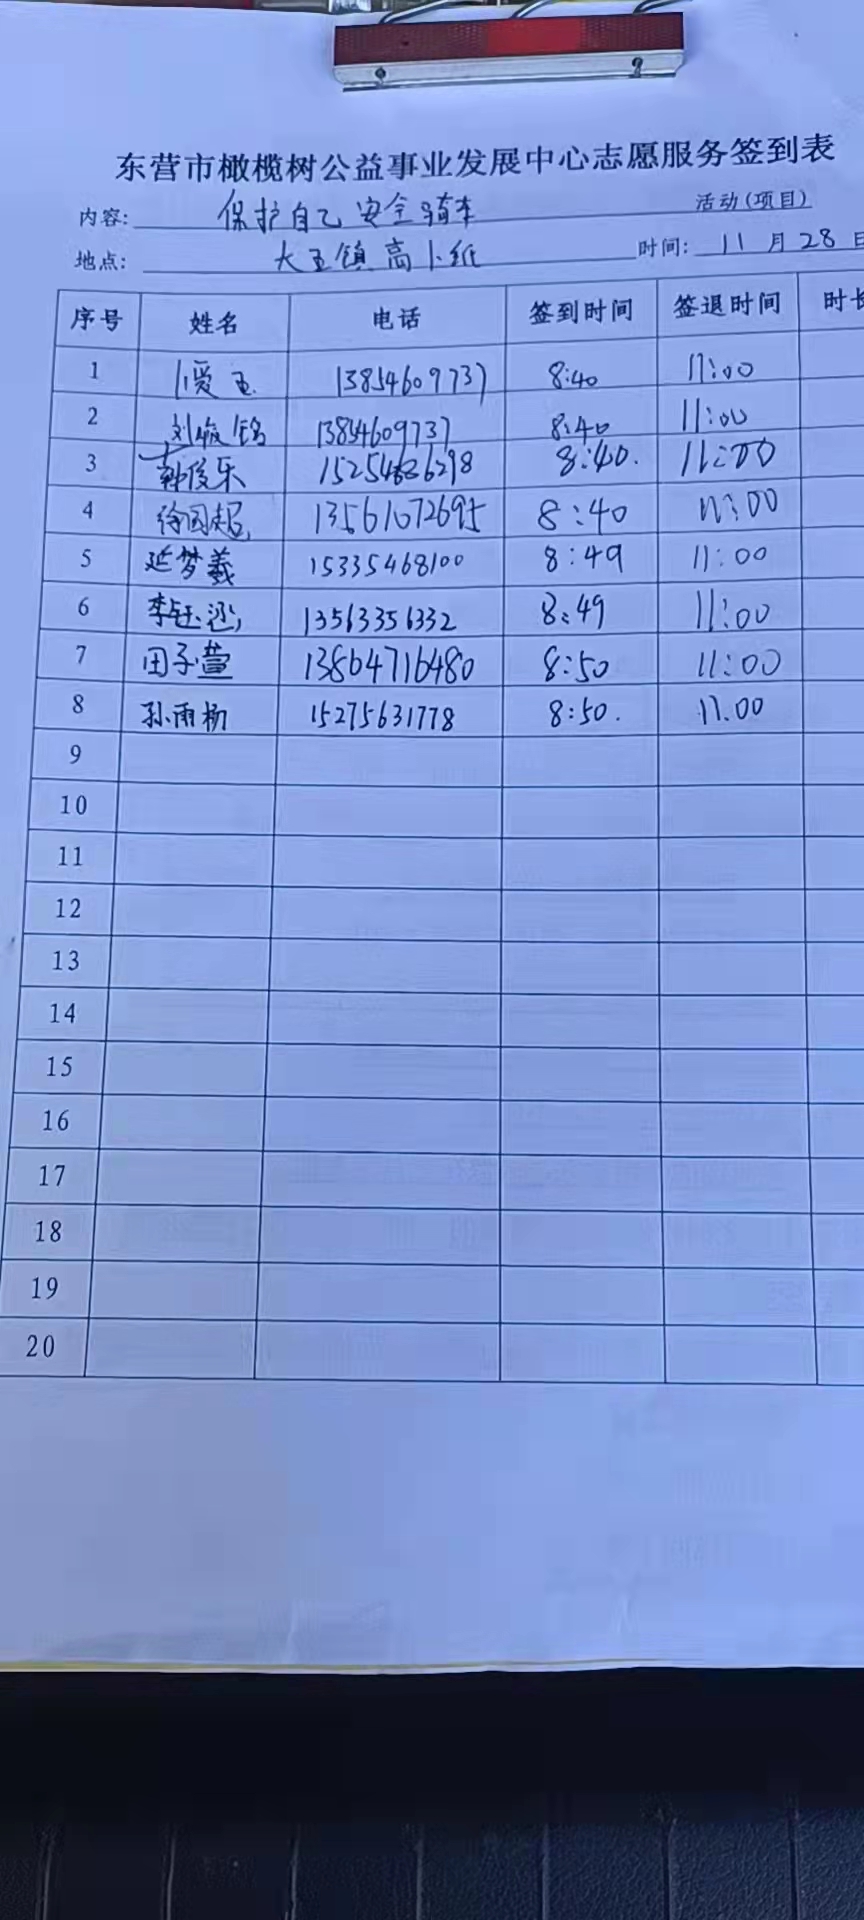 东营市橄榄树公益事业发展中心志愿服务签到表
内容: 保护自己 安全骑车 活动(项目)
地点: 大王镇高小纸 时间: 11 月 28 日
序号 姓名 电话 签到时间 签退时间 时长
1 13854609737 8:40 11:00
2 刘俊铭 13854609737 8:40 11:00
3 韩俊乐 15254636298 8:40. 11:00
4 徐国超 13561072695 8:40 11:00
5 延梦羲 15335468100 8:49 11:00
6 李钰涵 13563356332 8:49 11:00
7 田子萱 13864716480 8:50 11:00
8 孙雨杨 15275631778 8:50. 11.00
9
10
11
12
13
14
15
16
17
18
19
20